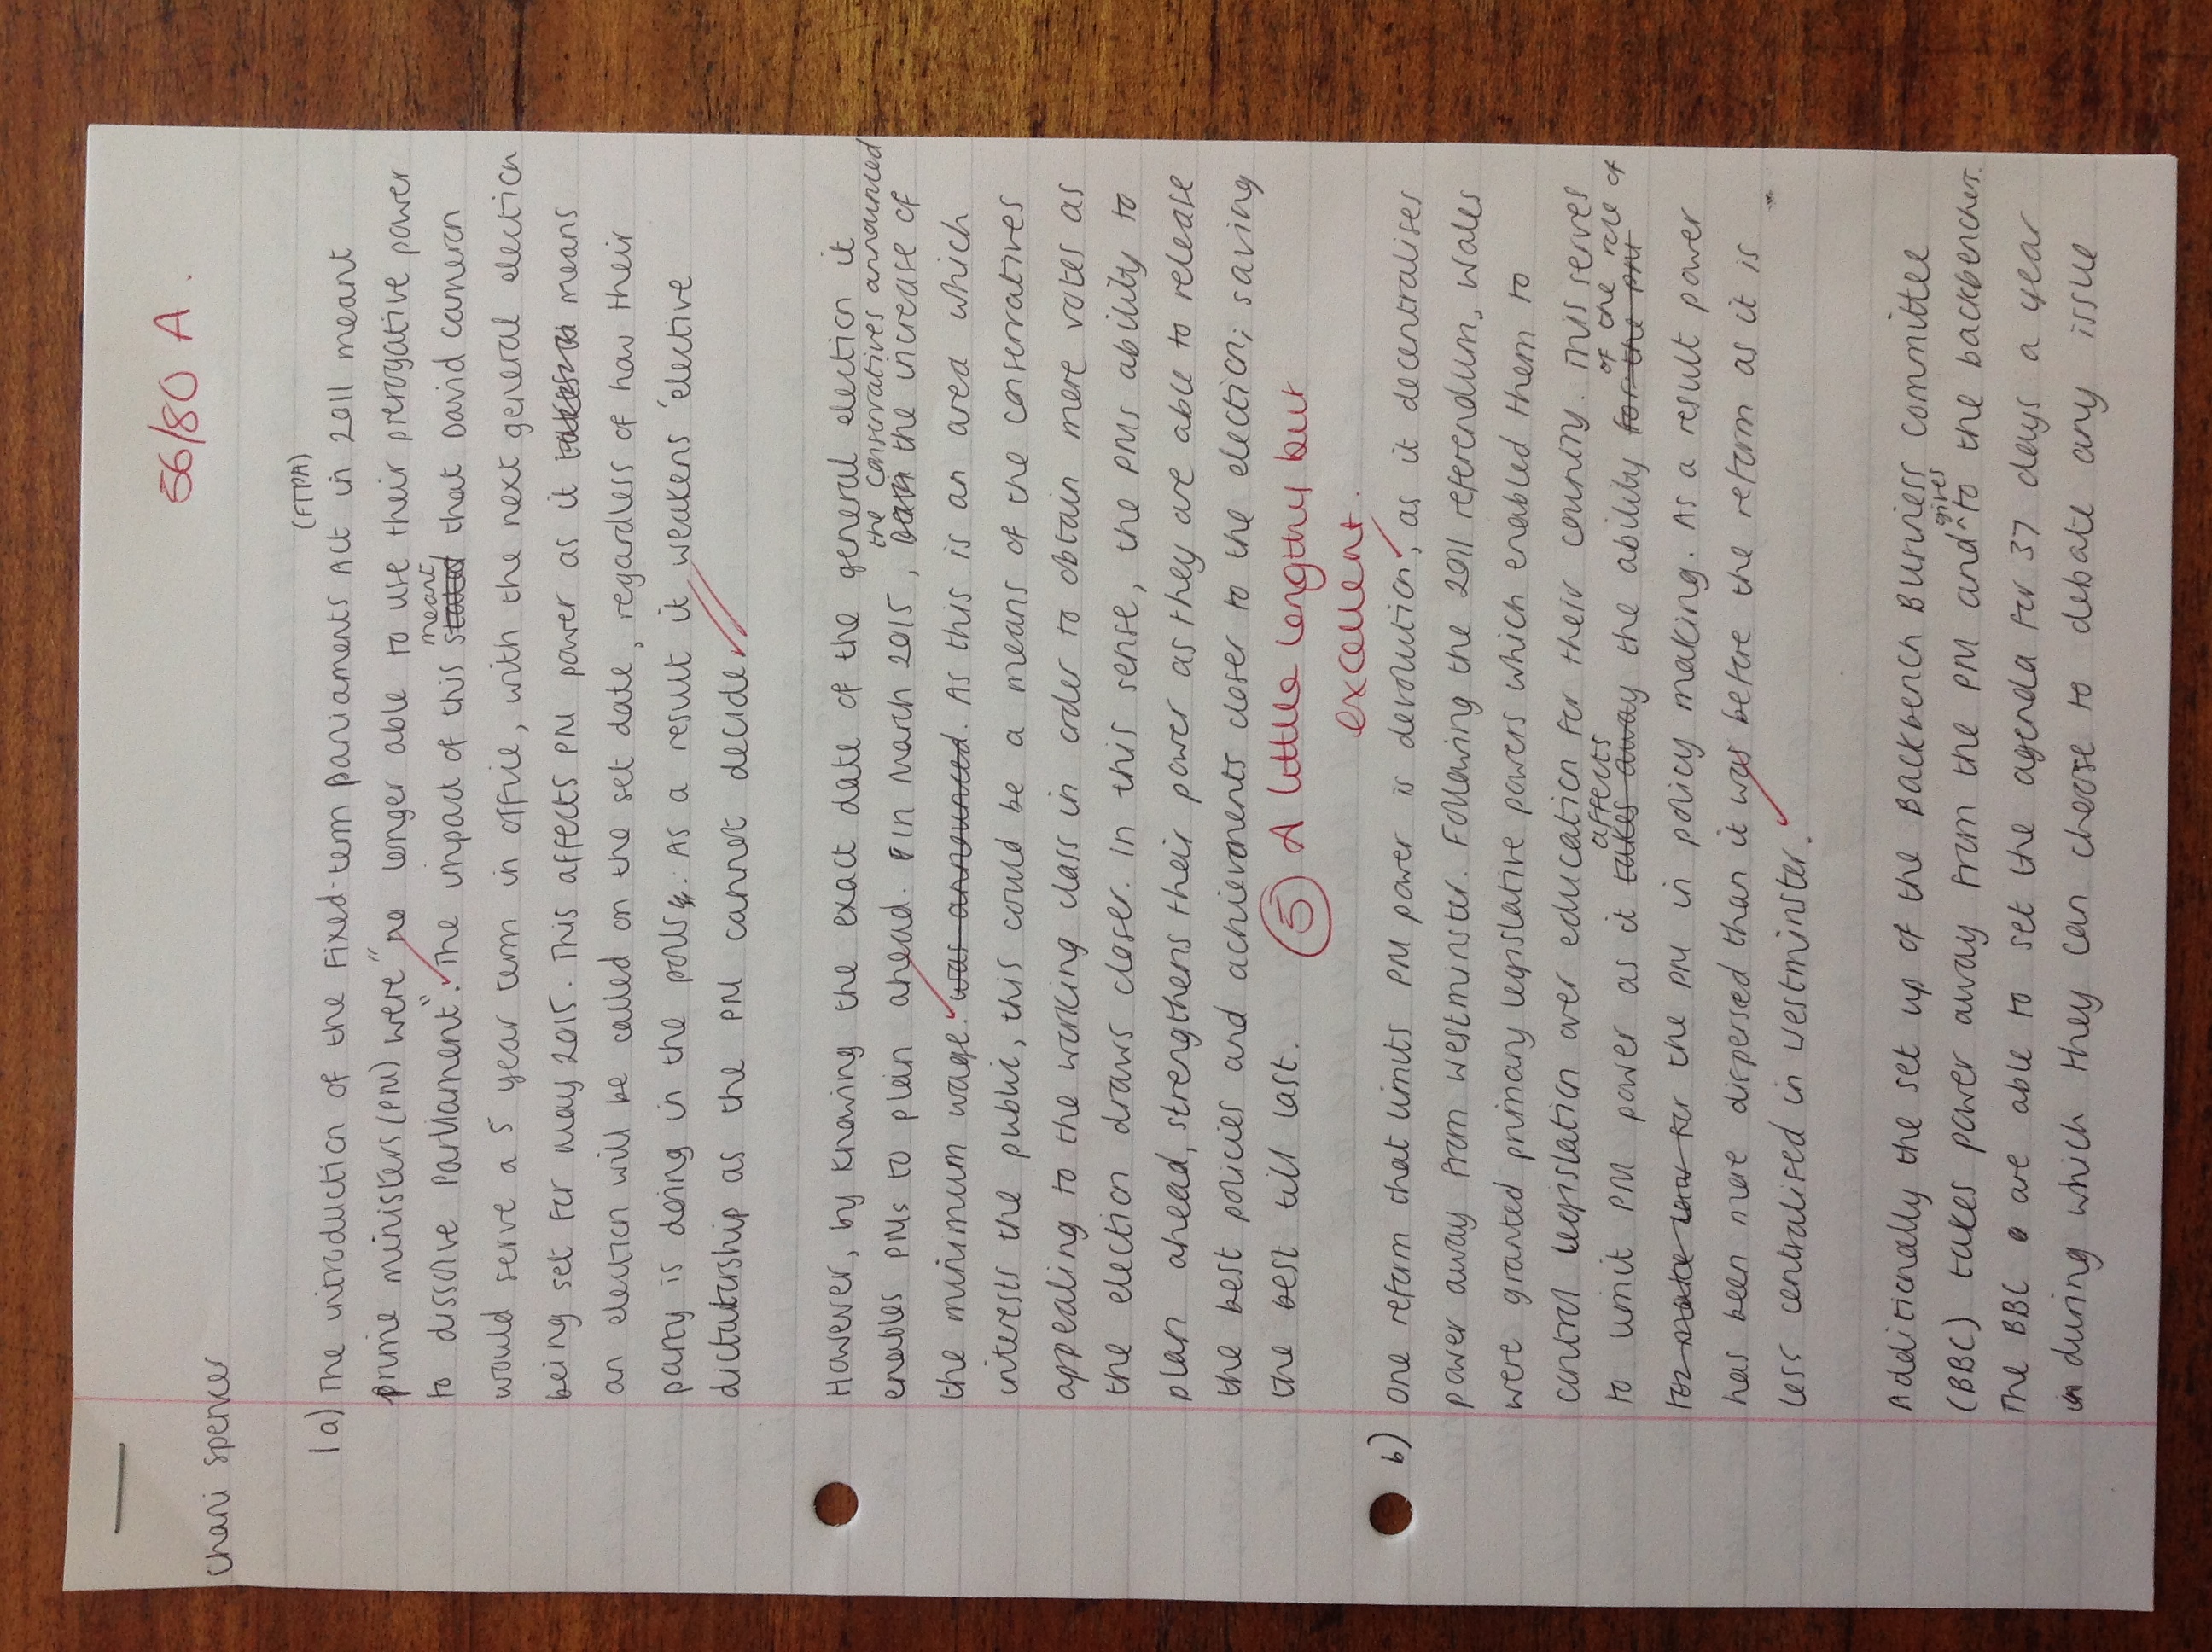 56/80 A.
Chani Spencer
(FTPA)
1a) The introduction of the Fixed-term parliaments Act in 2011 meant
prime ministers (PM) were "no longer able to use their prerogative power
meant
to dissolve Parliament". The impact of this stated that David Cameron
would serve a 5 year term in office, with the next general election
being set for may 2015. This affects PM power as it means
an election will be called on the set date, regardless of how their
party is doing in the polls. As a result it weakens 'elective
dictatorship as the PM cannot decide
However, by knowing the exact date of the general election it
the conservatives announced
enables PMs to plan ahead. In March 2015, the increase of
the minimum wage. was announced. As this is an area which
interests the public, this could be a means of the conservatives
appealing to the working class in order to obtain more votes as
the election draws closer. In this sense, the PMs ability to
plan ahead, strengthens their power as they are able to release
the best policies and achievements closer to the election; saving
the best till last. 5 A little lengthy but
excellent.
b) One reform that limits PM power is devolution, as it decentralises
power away from Westminster. Following the 2011 referendum, Wales
were granted primary legislative powers which enabled them to
control legislation over education for their country. This serves
affects of the role of
to limit PM power as it takes away the ability for the PM
for the PM in policy making. As a result power
has been more dispersed than it was before the reform as it is
less centralised in Westminster.
Additionally the set up of the Backbench Business Committee
gives
(BBC) takes power away from the PM and ^ to the backbencher.
The BBC are able to set the agenda for 37 days a year
in during which they can choose to debate any issue